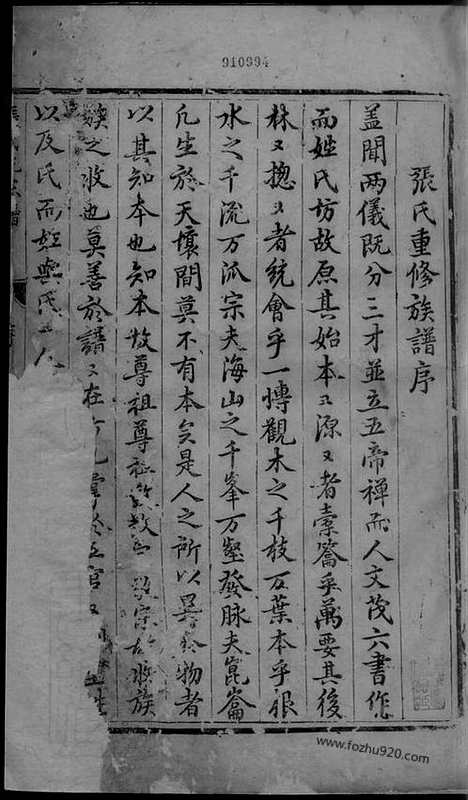 910994
張氏重修族譜序
蓋聞兩儀既分三才並立五帝禪而人文茂六書作
而姓氏坊故原其始本〻源〻者橐籥乎萬要其後
林〻揔〻者統會乎一慱觀木之千枝万葉本乎根
水之千流万派宗夫海山之千峯万壑發脉夫崑崙
凡生於天壤間莫不有本矣是人之所以異於物者
以其知本也知本故尊祖尊祖故敬宗敬宗故收族
族之收也莫善於譜〻在
以及氏而姓與氏
www.fozhu920.com